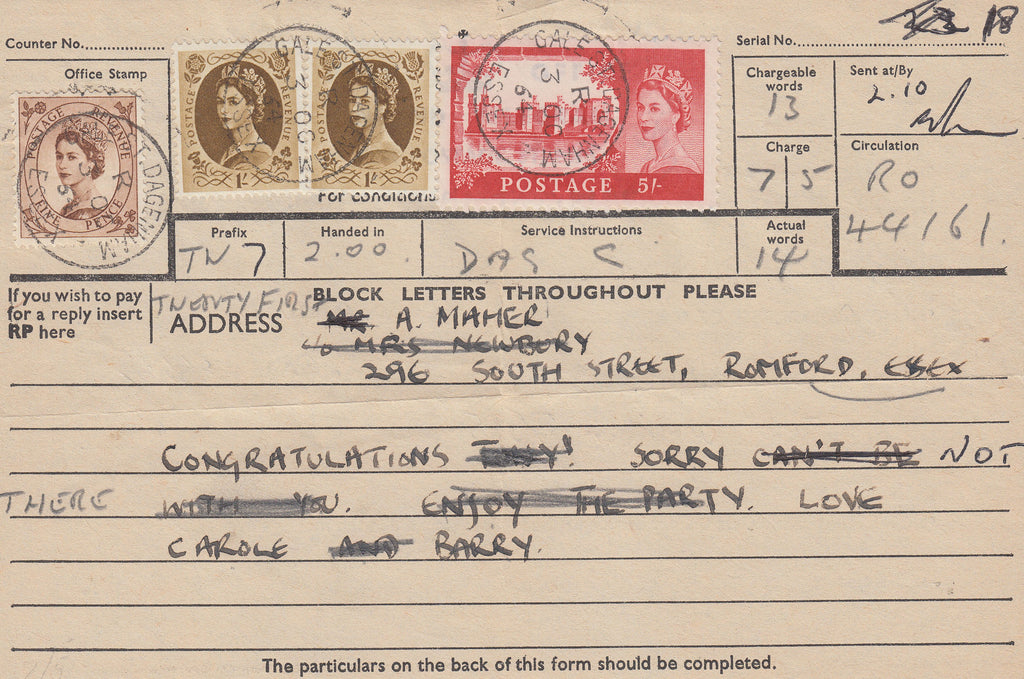 18
Counter No.
Serial No.
Office Stamp
POSTAGE REVENUE
FIVE PENCE
POSTAGE REVENUE
1/-
POSTAGE REVENUE
1/-
POSTAGE 5/-
GALE ST. DAGENHAM
ESSEX
Chargeable words
13
Sent at/By
2.10
Charge
7 5
Circulation
RO
44161.
For conditions
Prefix
TN7
Handed in
2.00.
Service Instructions
DAG C
Actual words
14
If you wish to pay
for a reply insert
RP here
BLOCK LETTERS THROUGHOUT PLEASE
TWENTY FIRST
ADDRESS
MR. A. MAHER
c/o MRS NEWBURY
296 SOUTH STREET, ROMFORD, ESSEX
CONGRATULATIONS TONY! SORRY CAN'T BE NOT
THERE WITH YOU. ENJOY THE PARTY. LOVE
CAROLE AND BARRY.
The particulars on the back of this form should be completed.